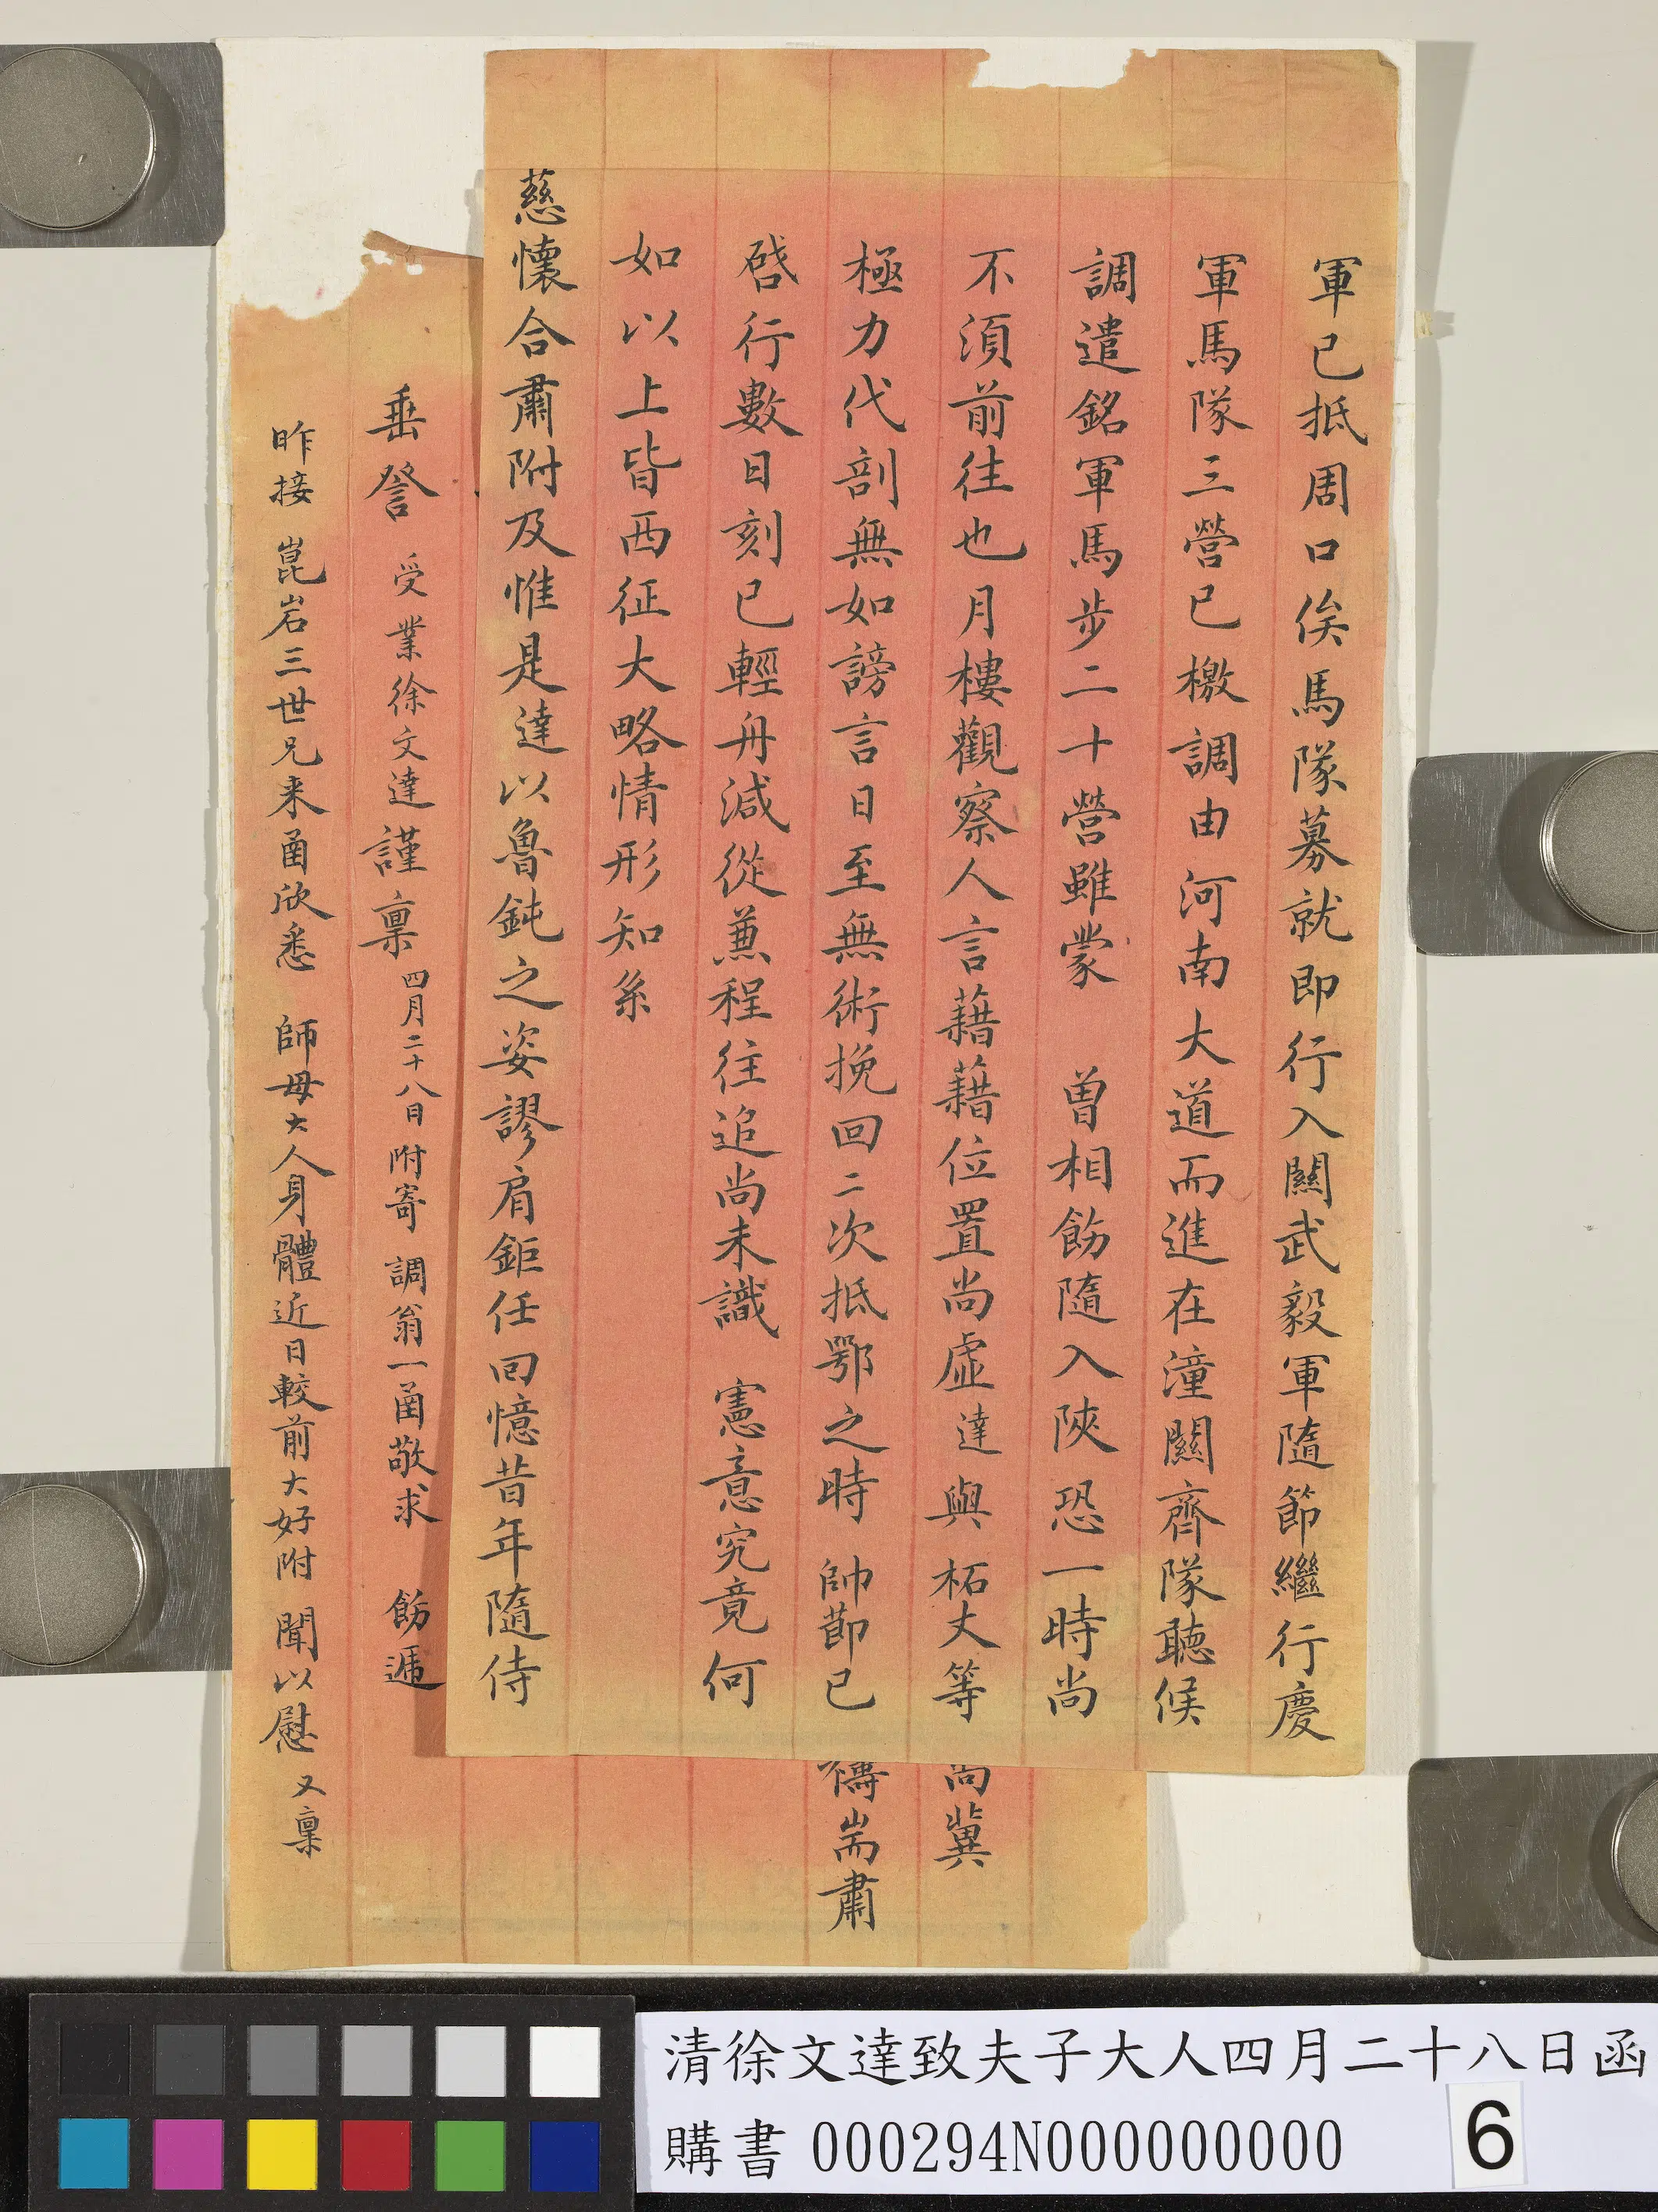 軍已抵周口俟馬隊募就即行入關武毅軍隨節繼行慶
軍馬隊三營已檄調由河南大道而進在潼關齊隊聽候
調遣銘軍馬步二十營雖蒙 曾相飭隨入陝恐一時尚
不須前往也月樓觀察人言藉藉位置尚虛達與柘丈等
極力代剖無如謗言日至無術挽回二次抵鄂之時 帥節已
啓行數日刻已輕舟減從兼程往追尚未識 憲意究竟何
如以上皆西征大略情形知系
慈懷合肅附及惟是達以魯鈍之姿謬肩鉅任回憶昔年隨侍
尚冀
禱耑肅
垂詧 受業徐文達謹稟 四月二十八日 附寄 調翁一函敬求 飭遞
昨接 崑岩三世兄来函欣悉 師母大人身體近日較前大好附 聞以慰 又稟
清徐文達致夫子大人四月二十八日函
購書 000294N000000000
6